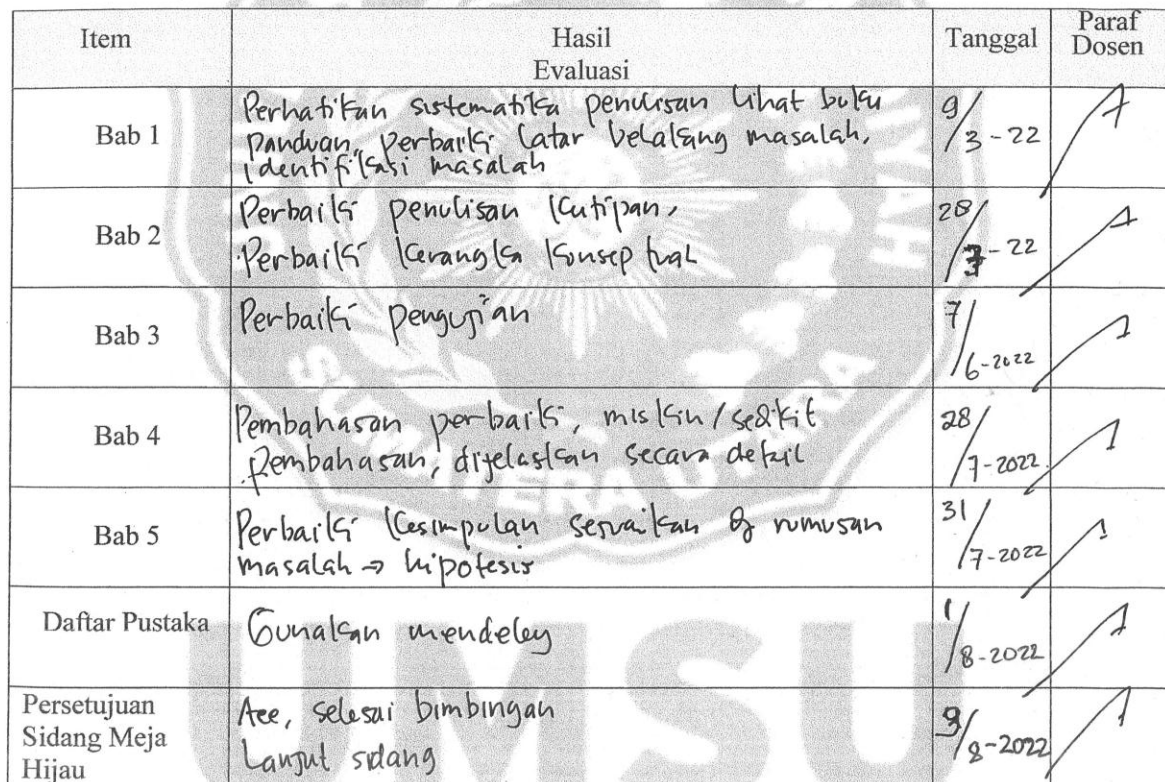 Item Hasil Evaluasi Tanggal Paraf Dosen
Bab 1
Perhatikan sistematika penulisan lihat buku
panduan, perbaiki latar belakang masalah,
identifikasi masalah
9/3-22
Bab 2
Perbaiki penulisan kutipan,
Perbaiki kerangka konseptual
28/3-22
Bab 3
Perbaiki pengujian
7/6-2022
Bab 4
Pembahasan perbaiki, miskin/sedikit
pembahasan, dijelaskan secara detail
28/7-2022
Bab 5
Perbaiki kesimpulan sesuaikan dg rumusan
masalah → hipotesis
31/7-2022
Daftar Pustaka
Gunakan mendeley
1/8-2022
Persetujuan
Sidang Meja
Hijau
Acc, selesai bimbingan
Lanjut sidang
9/8-2022
SUMATERA UTARA
UMSU